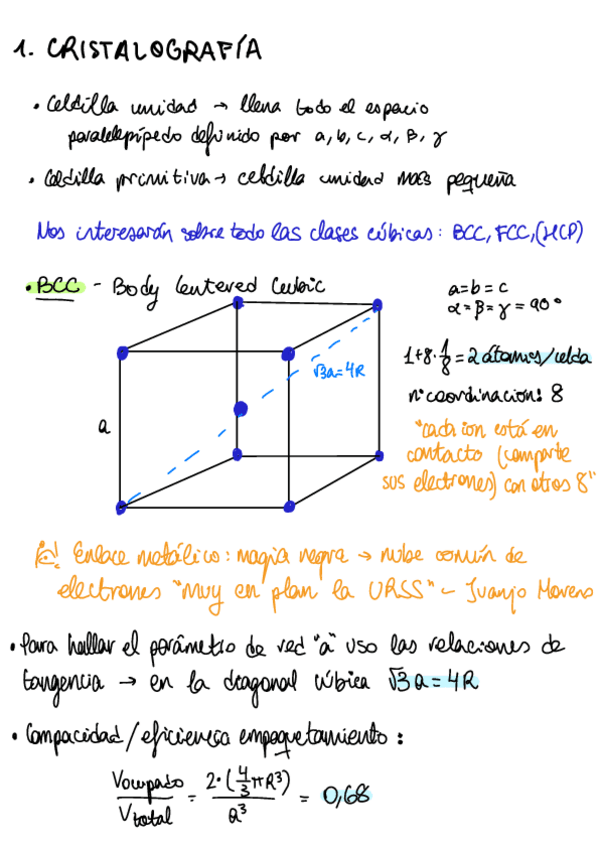 1. CRISTALOGRAFÍA
• Celdilla unidad → llena todo el espacio
paralelepípedo definido por a, b, c, α, β, γ
• Celdilla primitiva → celdilla unidad más pequeña
Nos interesarán sobre todo las clases cúbicas: BCC, FCC, (HCP)
• BCC - Body Centered Cubic
a=b=c
α=β=γ=90°
1+8·1/8=2 átomos/celda
√3a=4R
nº coordinacion: 8
a
"cada ion está en
contacto (comparte
sus electrones) con otros 8"
Enlace metálico: magia negra → nube común de
electrones "muy en plan la URSS" - Juanjo Moreno
• Para hallar el parámetro de red "a" uso las relaciones de
tangencia → en la diagonal cúbica √3a=4R
• Compacidad/eficiencia empaquetamiento:
Vocupado/Vtotal = 2·(4/3πR³)/a³ = 0,68